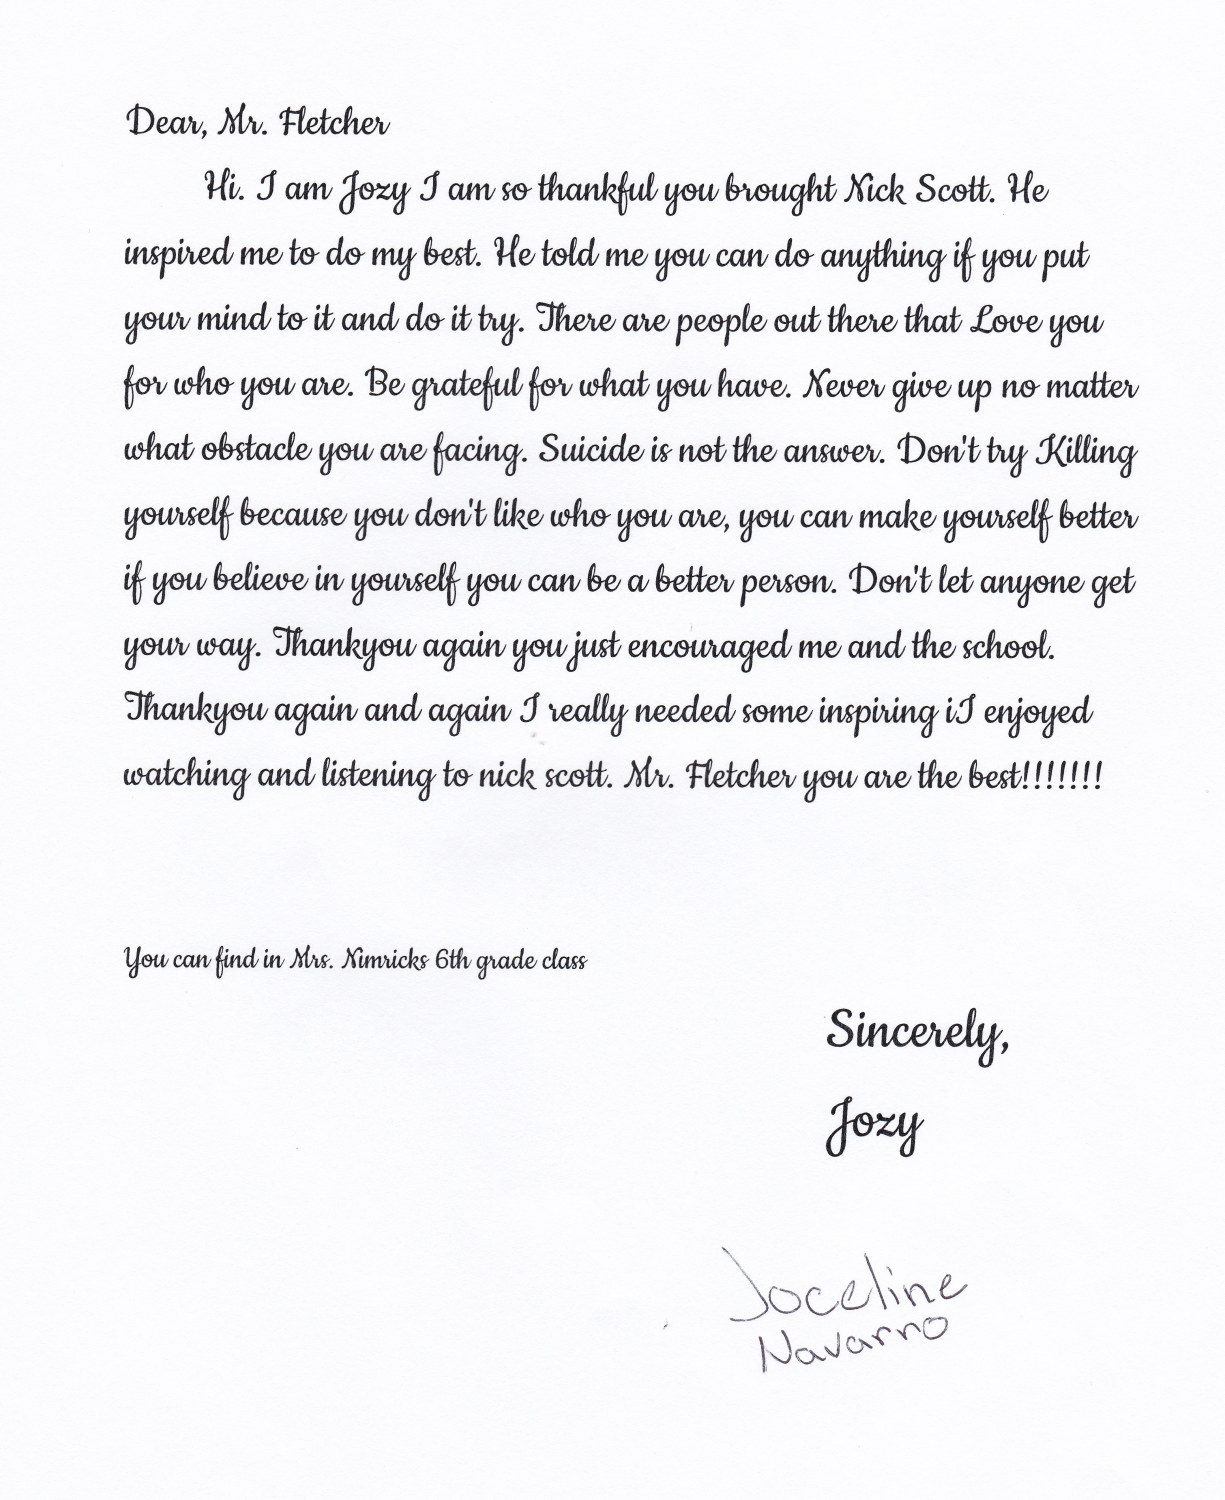 Dear, Mr. Fletcher
Hi. I am Jozy I am so thankful you brought Nick Scott. He
inspired me to do my best. He told me you can do anything if you put
your mind to it and do it try. There are people out there that Love you
for who you are. Be grateful for what you have. Never give up no matter
what obstacle you are facing. Suicide is not the answer. Don't try Killing
yourself because you don't like who you are, you can make yourself better
if you believe in yourself you can be a better person. Don't let anyone get
your way. Thankyou again you just encouraged me and the school.
Thankyou again and again I really needed some inspiring iI enjoyed
watching and listening to nick scott. Mr. Fletcher you are the best!!!!!!!
You can find in Mrs. Nimricks 6th grade class
Sincerely,
Jozy
Joceline
Navarro